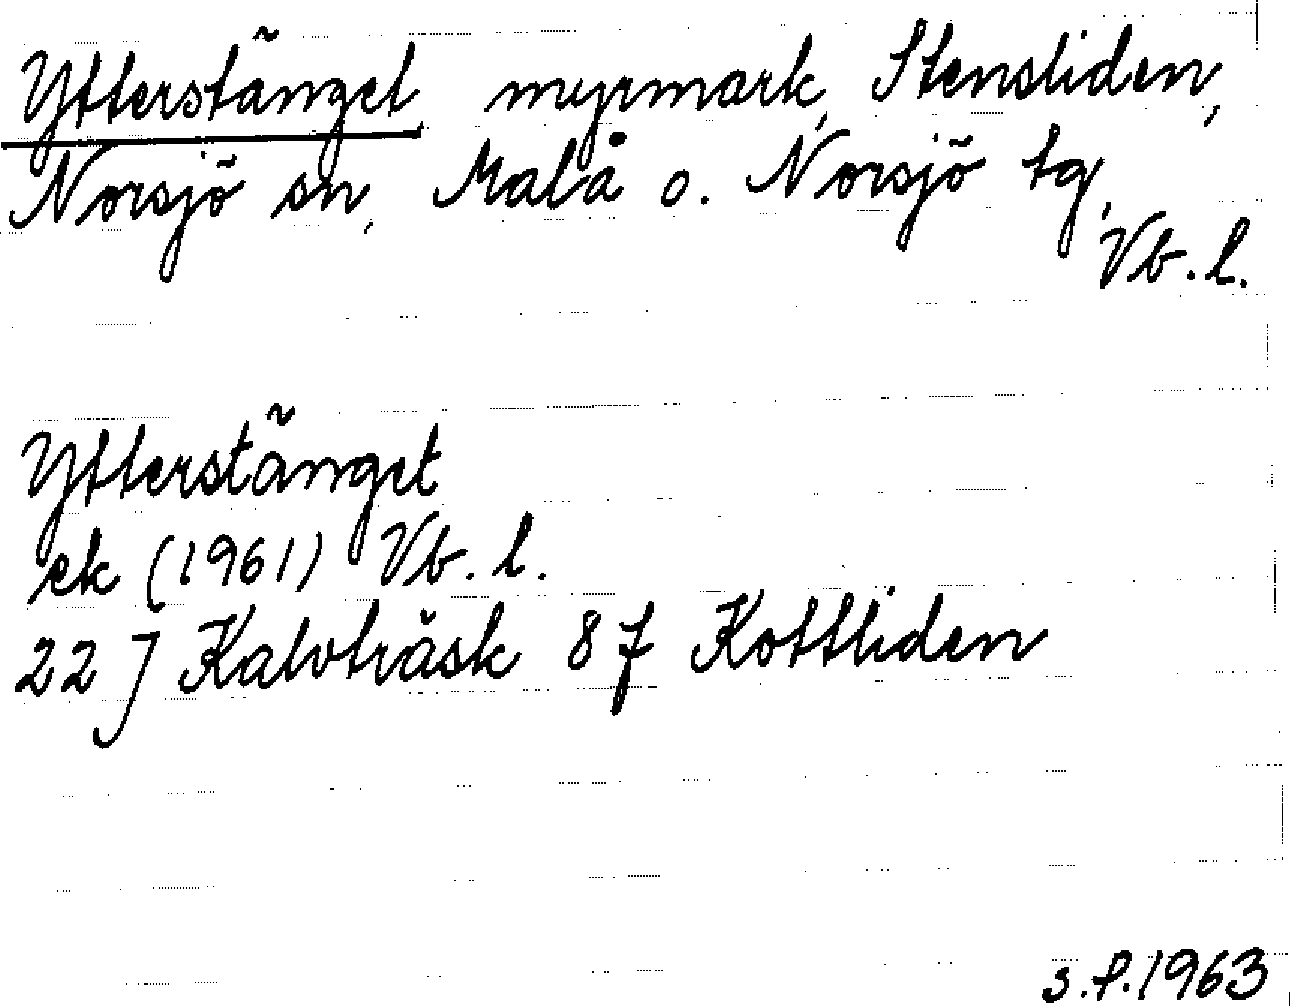 Ytterstänget myrmark, Stensliden,
Norsjö sn, Malå o. Norsjö tg,
Vb. l.
Ytterstänget
ek (1961) Vb. l.
22 J Kalvträsk 8 f Kottliden
s. f. 1963